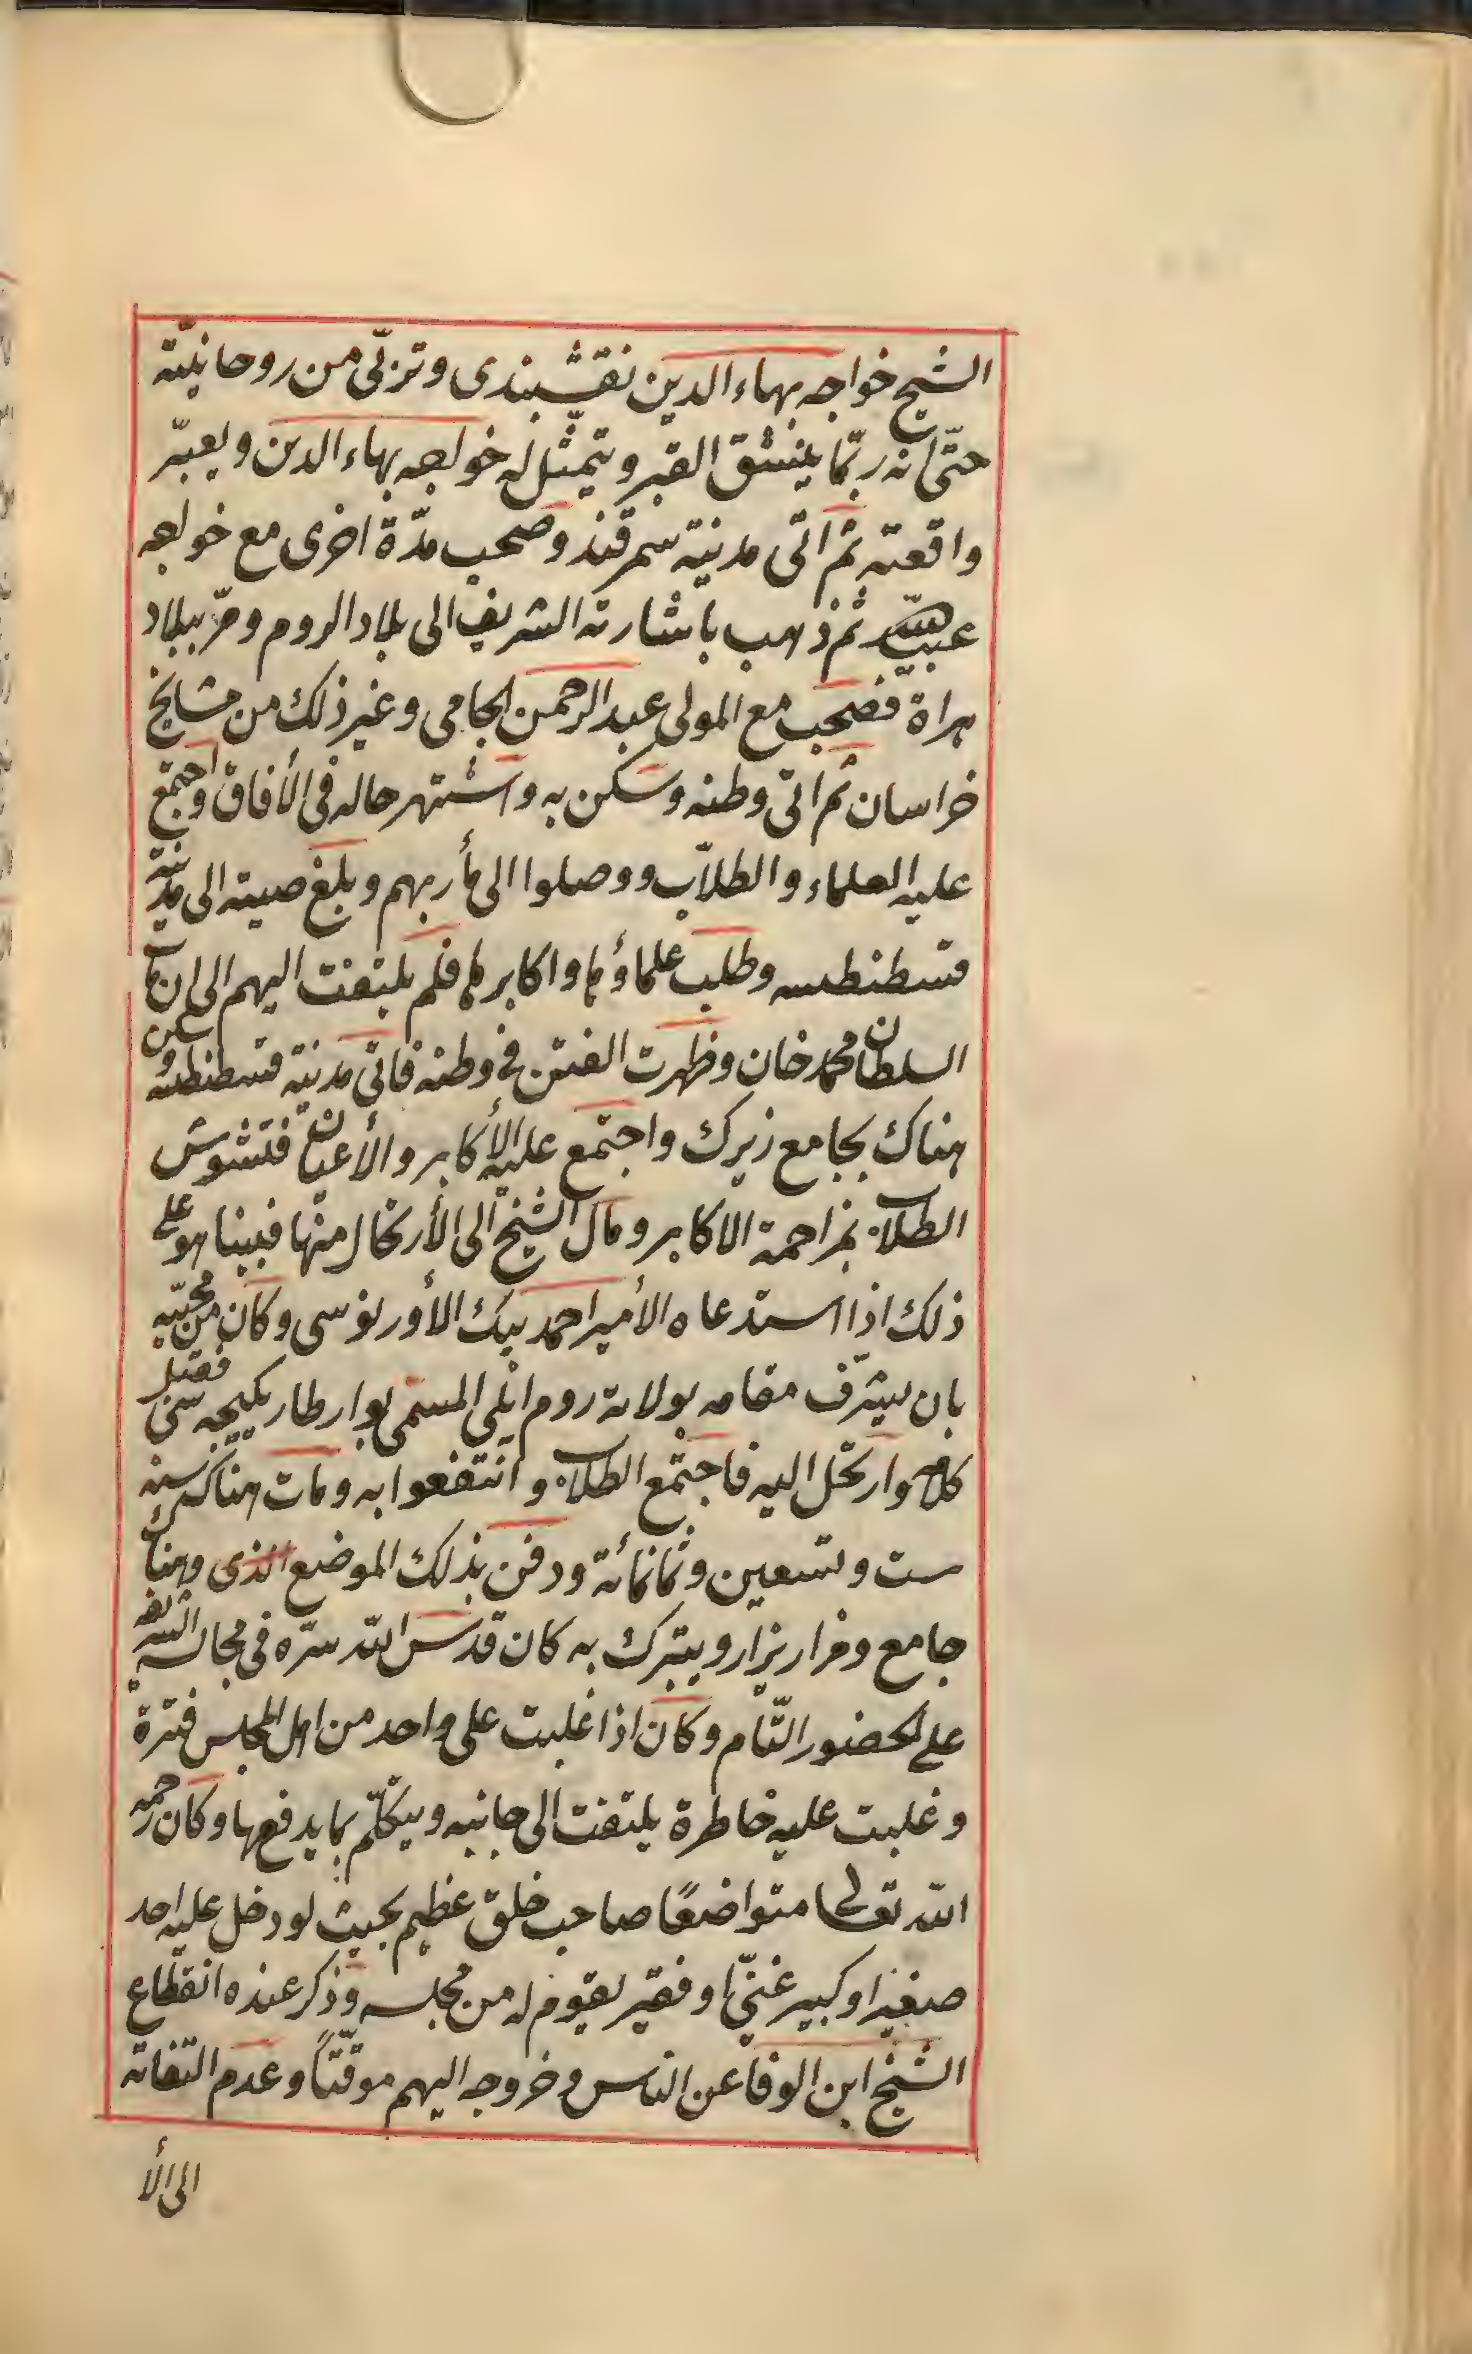 الشيخ خواجه بهاء الدين نقشبندى وتربّى من روحانيّته
حتّى انه ربّما ينشق القبر ويتمثّل له خواجه بهاء الدين ويعبّر
واقعته ثم اتى مدينة سمرقند وصحب مدّة اخرى مع خواجه
عبيد الله ثم ذهب باشارته الشريف الى بلاد الروم ومرّ ببلاد
هراة فصحب مع المولى عبد الرحمن الجامى وغير ذلك من مشايخ
خراسان ثم اتى وطنه وسكن به واشتهر حاله فى الأفاق واجتمع
عليه العلماء والطلاّب ووصلوا الى مأربهم وبلغ صيته الى مدينة
قسطنطسه وطلب علماؤها واكابرها فلم يلتفت اليهم الى ان مات
السلطان محمد خان وظهرت الفتن فى وطنه فاتى مدينة قسطنطسه وسكن
هناك بجامع زيرك واجتمع عليه الأكابر والأعيان فتشوش
الطلاب بمزاحمة الاكابر ومال الشيخ الى الأرتحال منها فبينا هو على
ذلك اذا استدعاه الأمير احمد بيك الأورنوسى وكان من محبّيه
بان يشرّف مقامه بولاية روم ايلى المسمّى بوارطار يكيجه سى فقبل
كلامه وارتحل اليه فاجتمع الطلاب وانتفعوا به ومات هناك سنه
ست وتسعين وثمانمائة ودفن بذلك الموضع الذى وهناك
جامع ومزار يزار ويتبرك به كان قدّس الله سرّه فى مجالسه الشريفه
على الحضور التّام وكان اذا غلبت على واحد من اهل المجلس فترة
وغلبت عليه خاطرة يلتفت الى جانبه ويتكلّم بما يدفعها وكان رحمه
الله تعالى متواضعًا صاحب خلق عظيم بحيث لو دخل عليه احد
صغيرا وكبير غنيّا وفقير يقوم له من مجلسه وذكر عنده انقطاع
الشيخ ابن الوفا عن الناس وخروجه اليهم موقّتاً وعدم التفاته
الى الأ